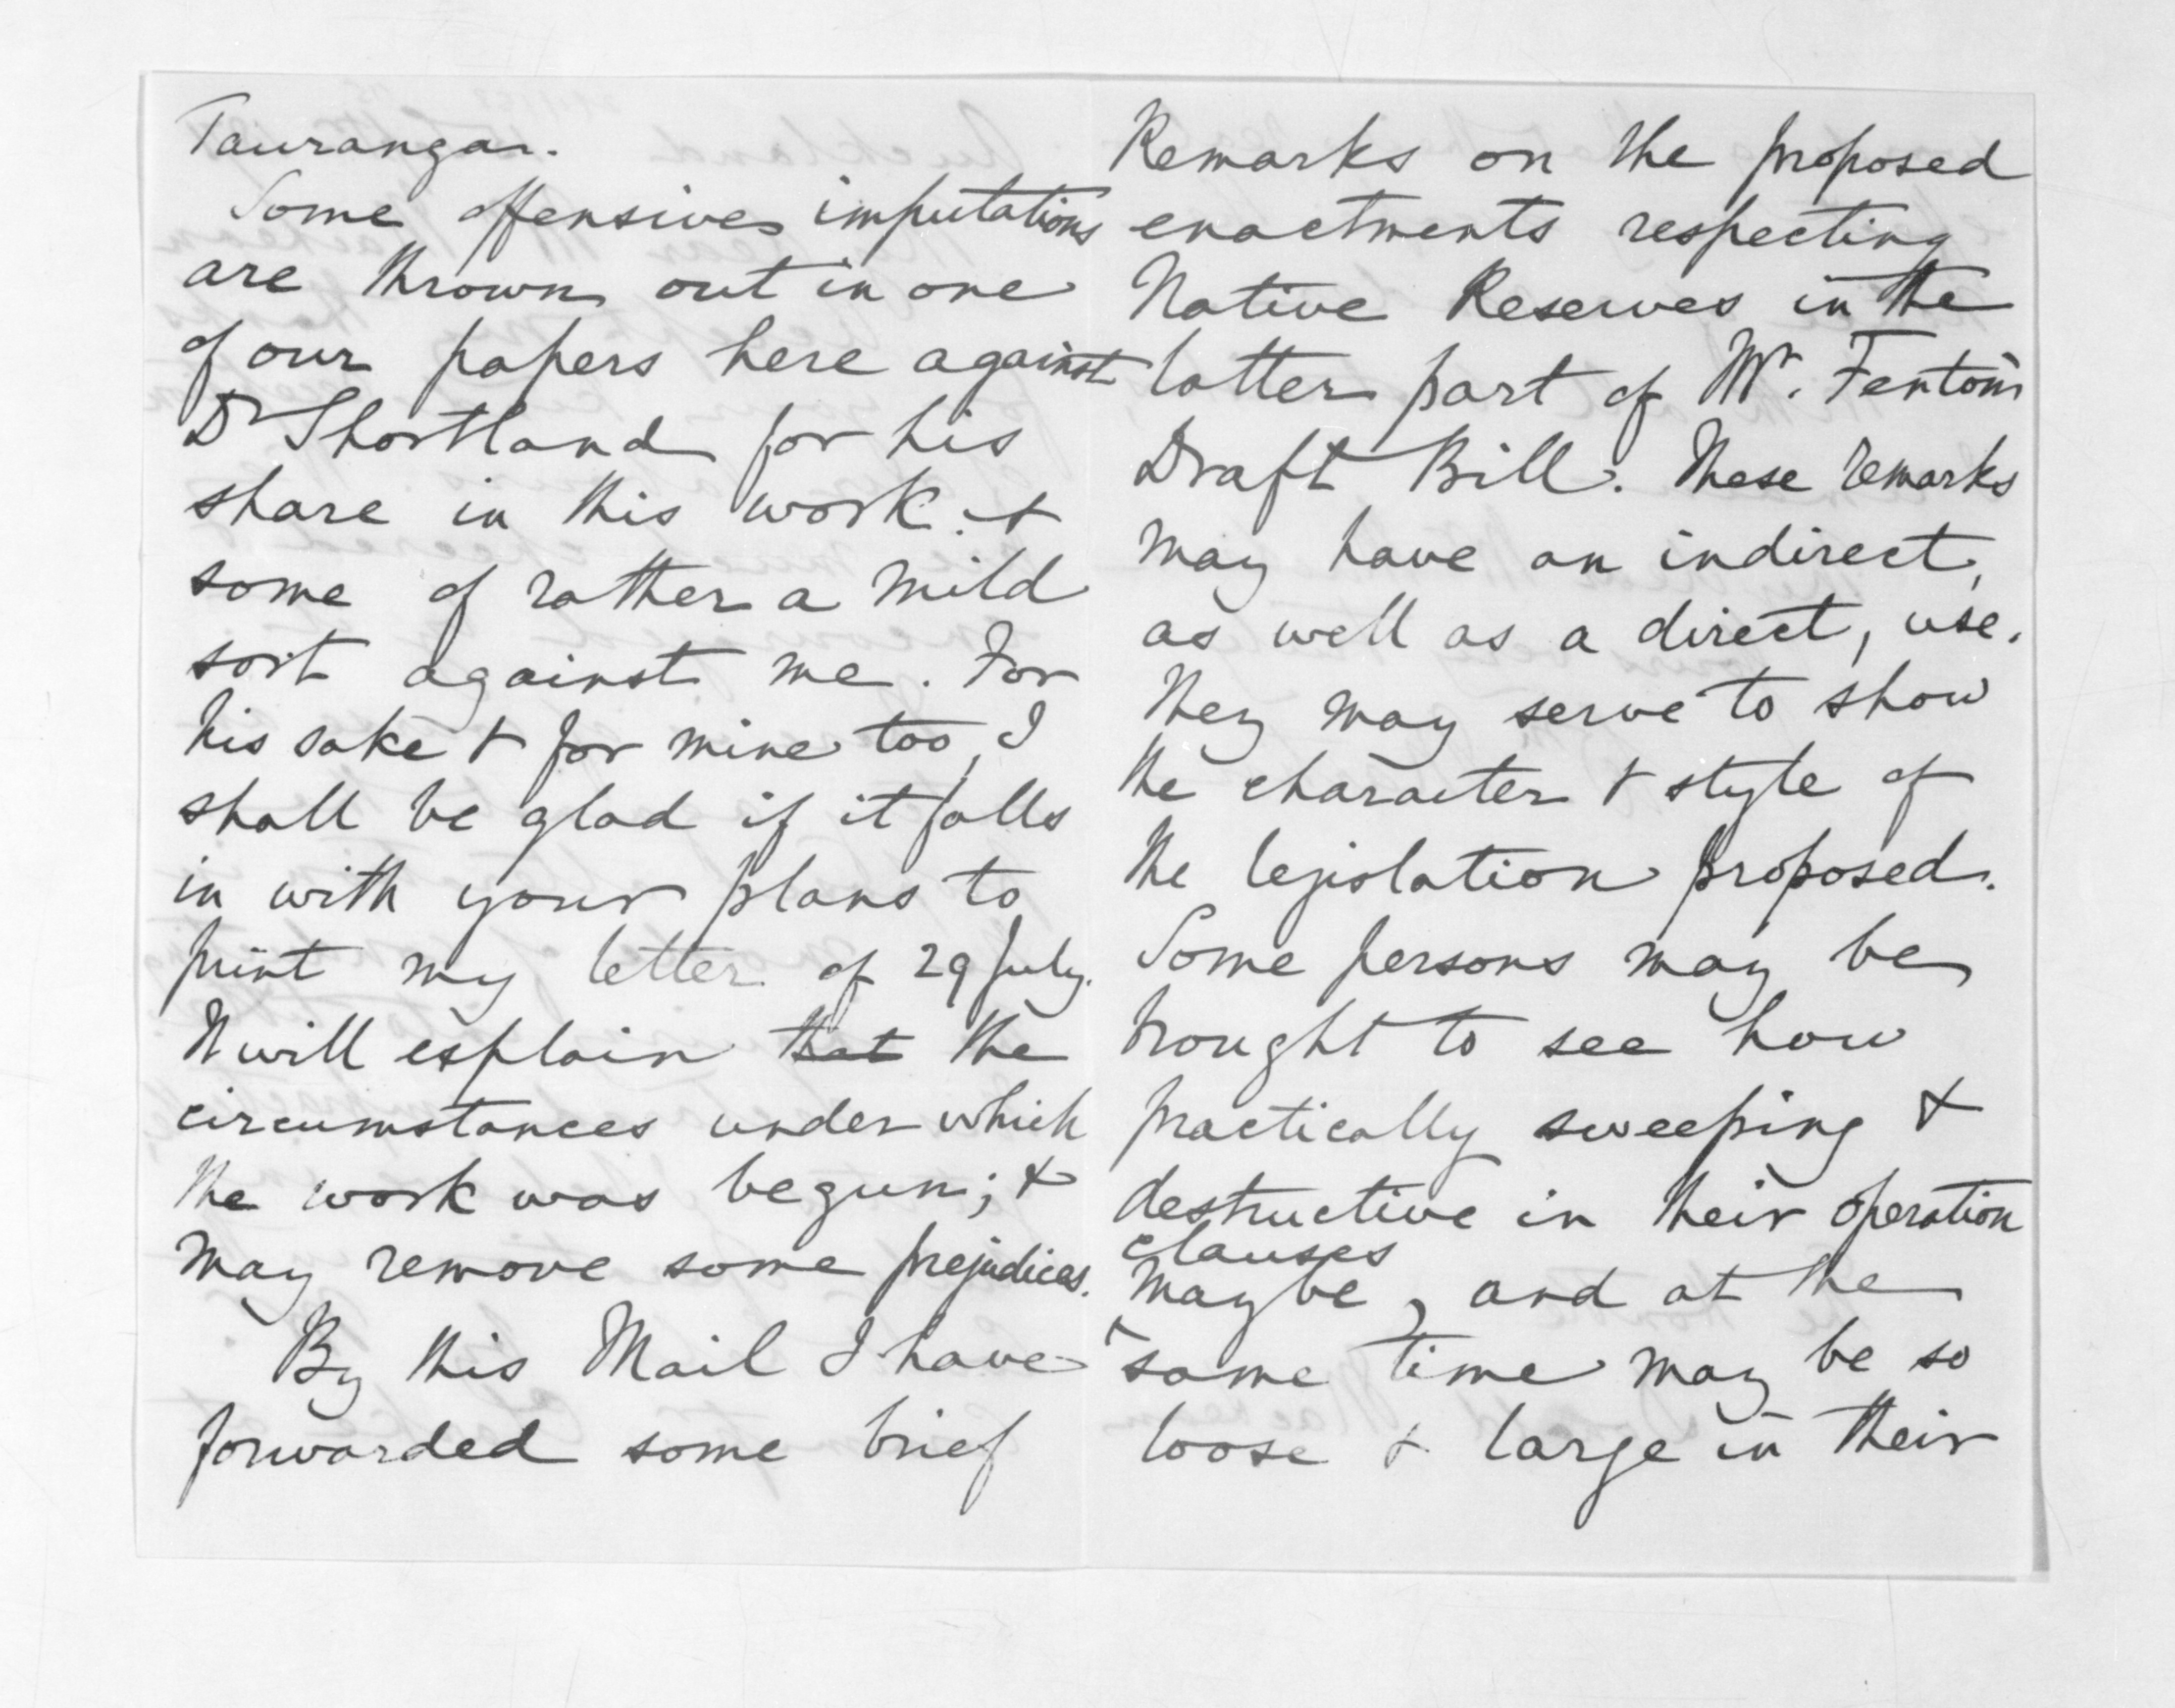 Tauranga.
Some offensive imputations
are thrown out in one
of our papers here against
Dr Shortland for his
share in this work & 
some of rather a mild
sort against me. For
his sake & for mine too, I
shall be glad if it falls
in with your plans to
print my letter of 29 July.
It will explain that the
circumstances under which
the work was begun; &
may remove some prejudices.
By this Mail I have
forwarded some brief
Remarks on the proposed
enactments respecting
Native Reserves in the
latter part of Mr. Fenton's
Draft Bill. These remarks
may have an indirect,
as well as a direct, use.
They may serve to show
the character & style of
the legislation proposed.
Some persons may be
brought to see how
practically sweeping &
destructive in their operation
clauses
may be, and at the
same time may be so
loose & large in their